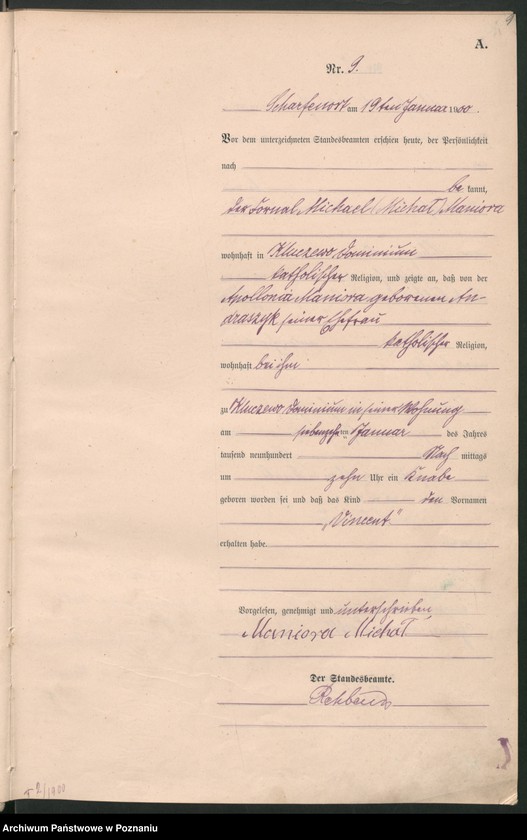 A.
Nr. 9.
Scharfenort am 19ten Januar 1900.
Vor dem unterzeichneten Standesbeamten erschien heute, der Persönlichkeit
nach
be kannt,
der Fornal Michael (Michał) Maniora
wohnhaft in Kluczewo Dominium
katholischer Religion, und zeigte an, daß von der
Apollonia Maniora geborenen An-
draszyk seiner Ehefrau
katholischer Religion,
wohnhaft bei ihm
zu Kluczewo Dominium in seiner Wohnung
am siebenzehnten Januar des Jahres
tausend neunhundert Nach mittags
um zehn Uhr ein Knabe
geboren worden sei und daß das Kind den Vornamen
„Vincent“
erhalten habe.
Vorgelesen, genehmigt und unterschrieben
Maniora Michał
Der Standesbeamte.
2/1900
Archiwum Państwowe w Poznaniu